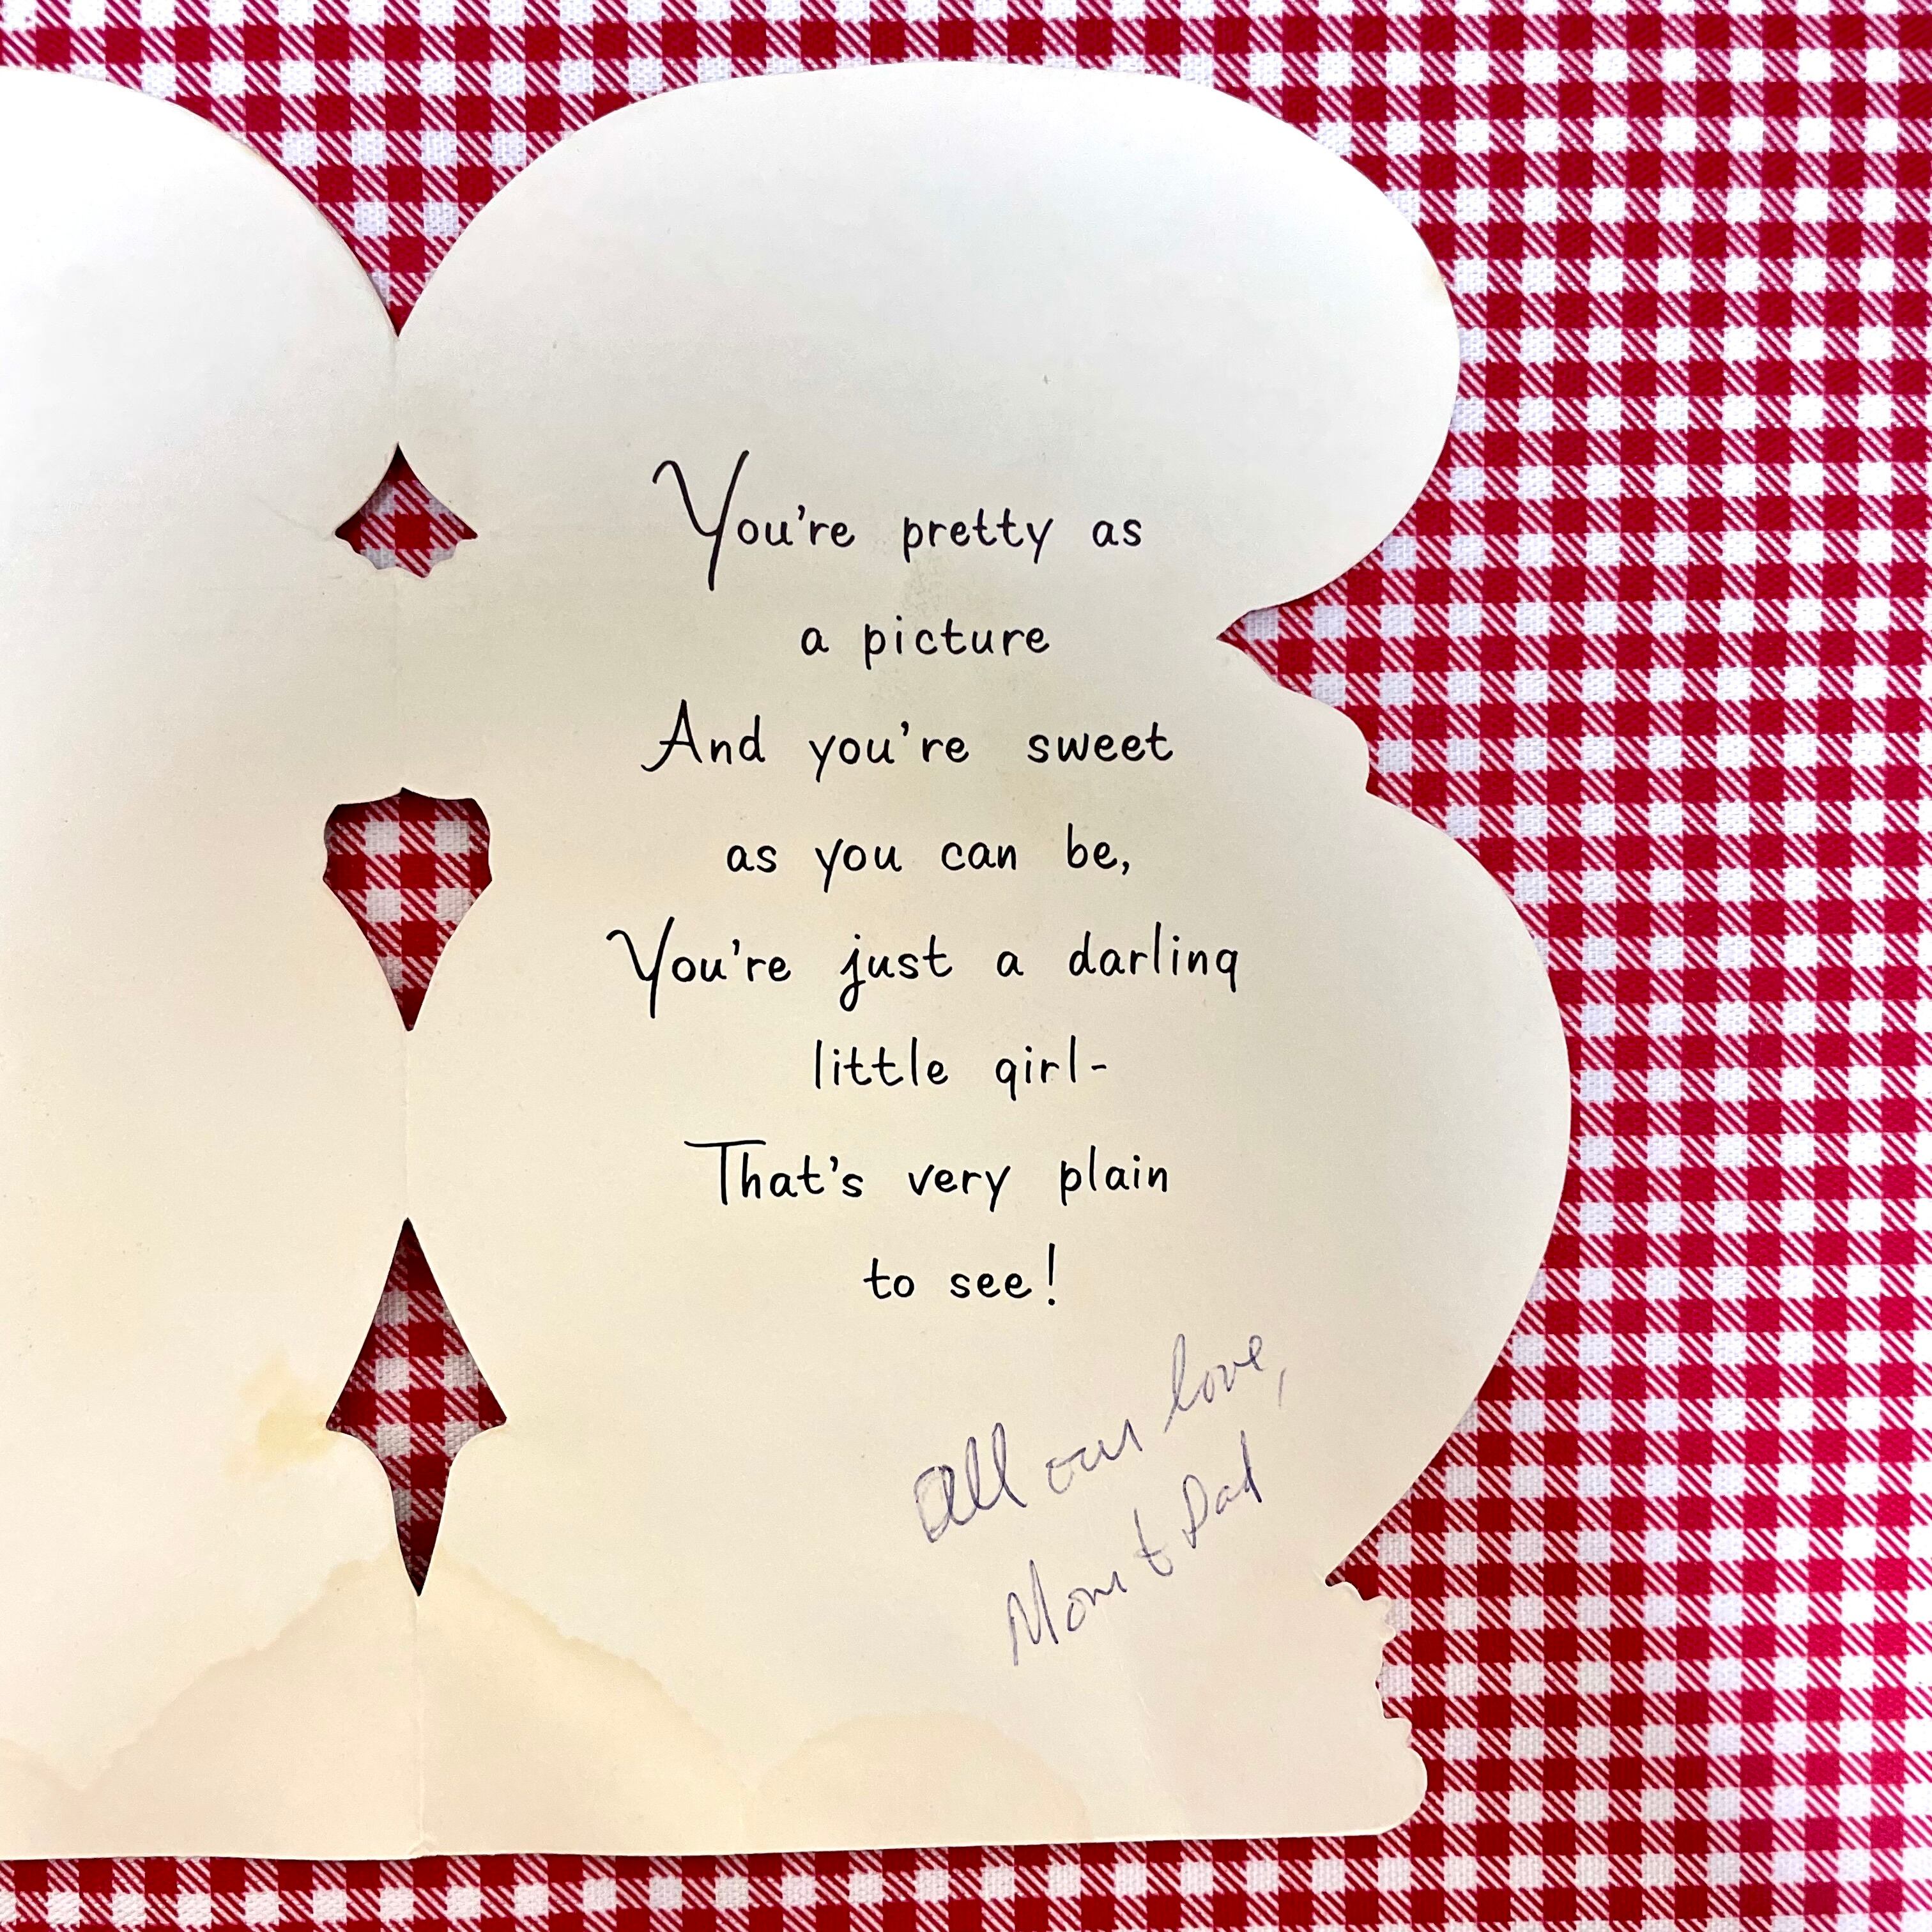 You're pretty as
a picture
And you're sweet
as you can be,
You're just a darling
little girl-
That's very plain
to see!
All our love,
Mom & Dad